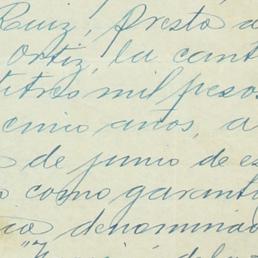 Ruiz, presto a
Ortiz, la cant
titres mil pesos
cinco anos, a
de junio de es
como garantí
denominad